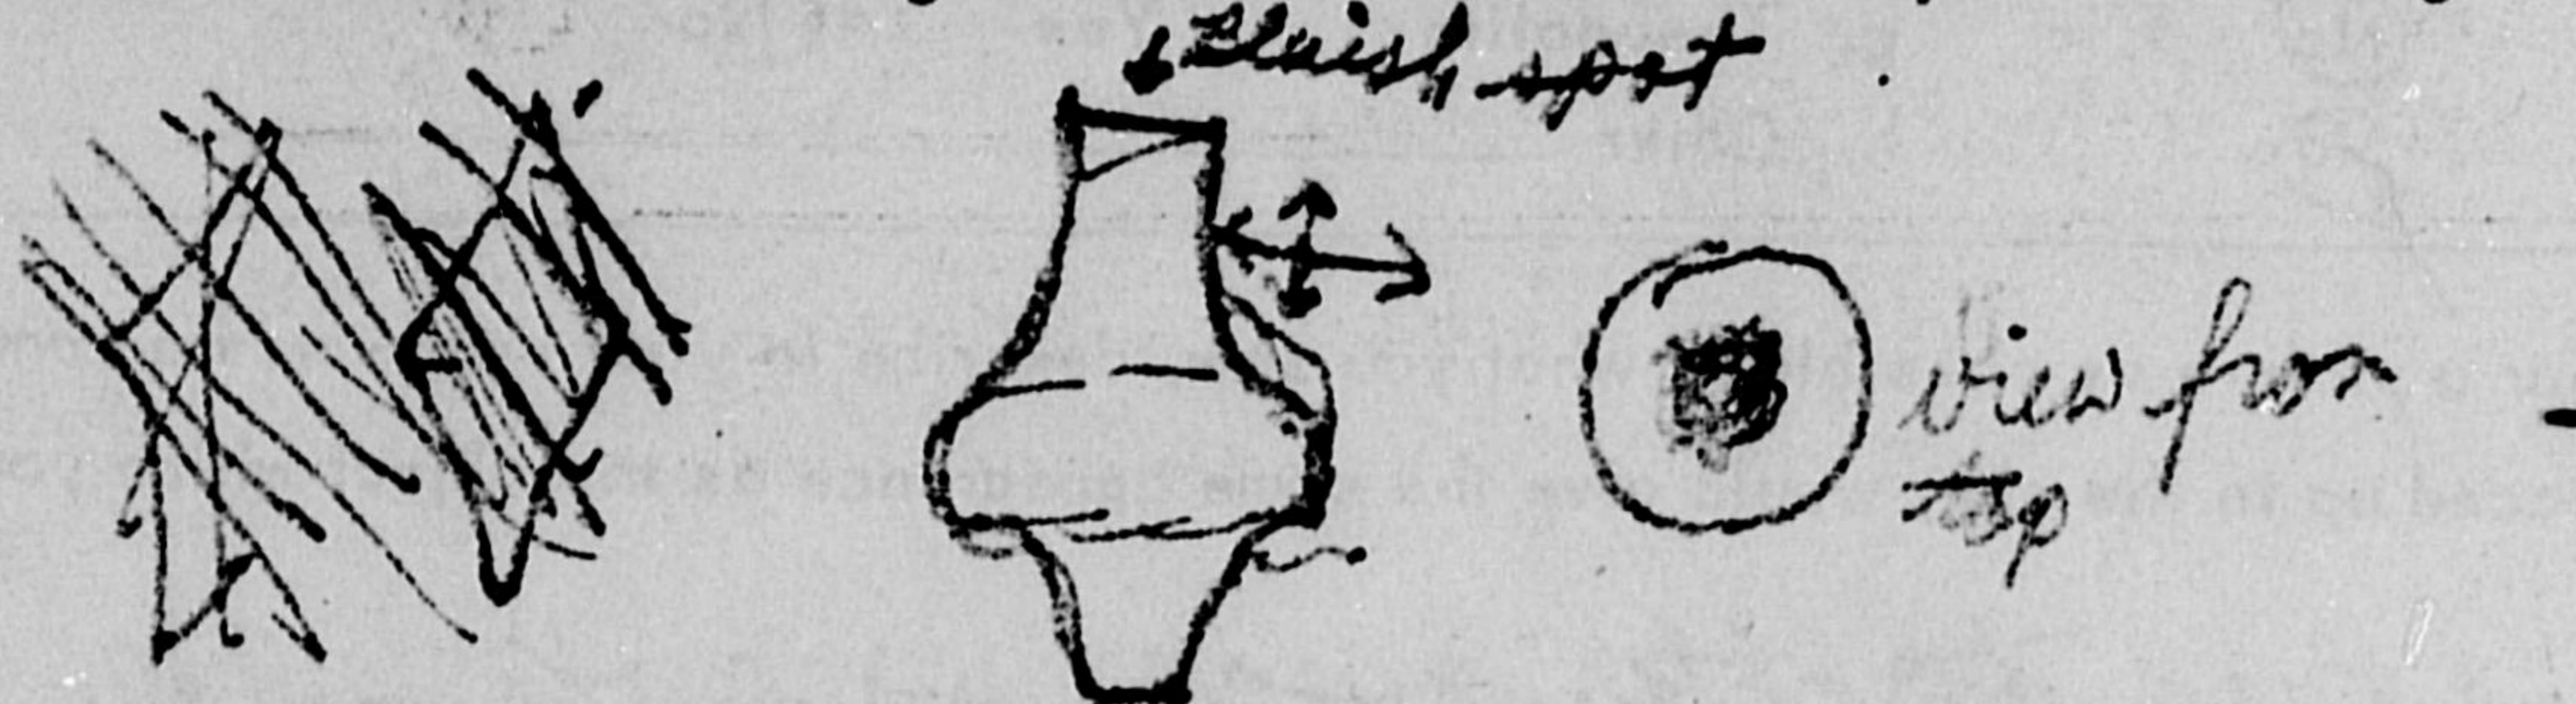 Bluish spot.
view from
top